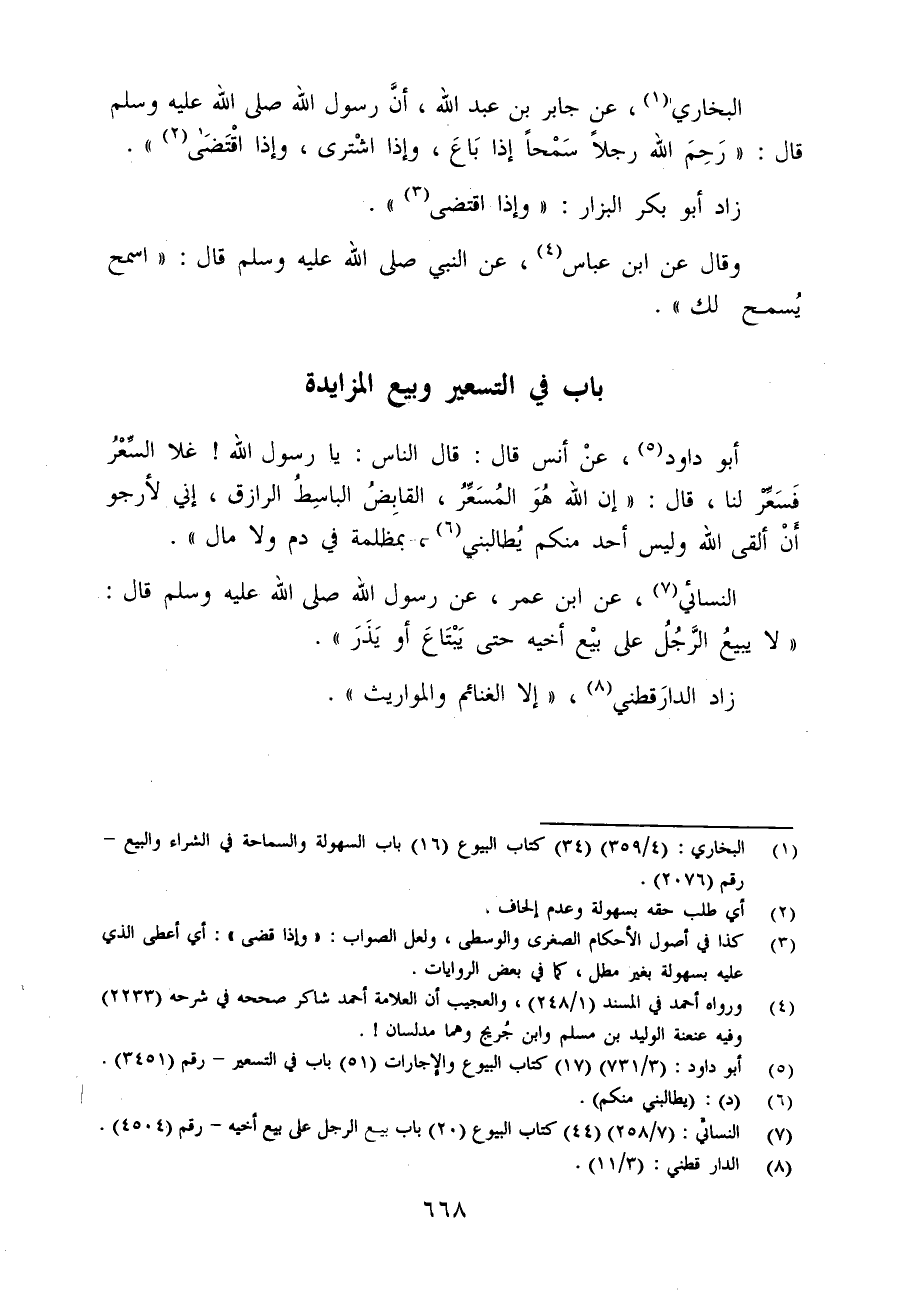 البخاري(١) ، عن جابر بن عبد الله ، أنَّ رسول الله صلى الله عليه وسلم
قال : « رَحِمَ الله رجلاً سَمْحاً إذا بَاعَ ، وإذا اشْترى ، وإذا اقْتَضَىٰ(٢) » .
زاد أبو بكر البزار : « وإذا اقتضى(٣) » .
وقال عن ابن عباس(٤) ، عن النبي صلى الله عليه وسلم قال : « اسمح
يُسمـح لك » .
باب في التسعير وبيع المزايدة
أبو داود(٥) ، عنْ أنس قال : قال الناس : يا رسول الله ! غلا السِّعْرُ
فَسَعِّرْ لنا ، قال : « إن الله هُوَ المُسَعِّرُ ، القابِضُ الباسِطُ الرازق ، إني لأرجو
أَنْ ألقى الله وليس أحد منكم يُطالبني(٦) ، بمظلمة في دم ولا مال » .
النسائي(٧) ، عن ابن عمر ، عن رسول الله صلى الله عليه وسلم قال :
« لا يبيعُ الرَّجُلُ على بيْع أخيه حتى يَبْتَاعَ أو يَذَرَ » .
زاد الدارَقطني(٨) ، « إلا الغنائم والمواريث » .
(١) البخاري : (٣٥٩/٤) (٣٤) كتاب البيوع (١٦) باب السهولة والسماحة في الشراء والبيع –
رقم (٢٠٧٦) .
(٢) أي طلب حقه بسهولة وعدم إلحاف .
(٣) كذا في أصول الأحكام الصغرى والوسطى ، ولعل الصواب : « وإذا قضى » : أي أعطى الذي
عليه بسهولة بغير مطل ، كما في بعض الروايات .
(٤) ورواه أحمد في المسند (٢٤٨/١) ، والعجيب أن العلامة أحمد شاكر صححه في شرحه (٢٢٣٣)
وفيه عنعنة الوليد بن مسلم وابن جُريج وهما مدلسان ! .
(٥) أبو داود : (٧٣١/٣) (١٧) كتاب البيوع والإجارات (٥١) باب في التسعير – رقم (٣٤٥١) .
(٦) (د) : (يطالبني منكم) .
(٧) النسائي : (٢٥٨/٧) (٤٤) كتاب البيوع (٢٠) باب بيع الرجل على بيع أخيه – رقم (٤٥٠٤) .
(٨) الدار قطني : (١١/٣) .
٦٦٨